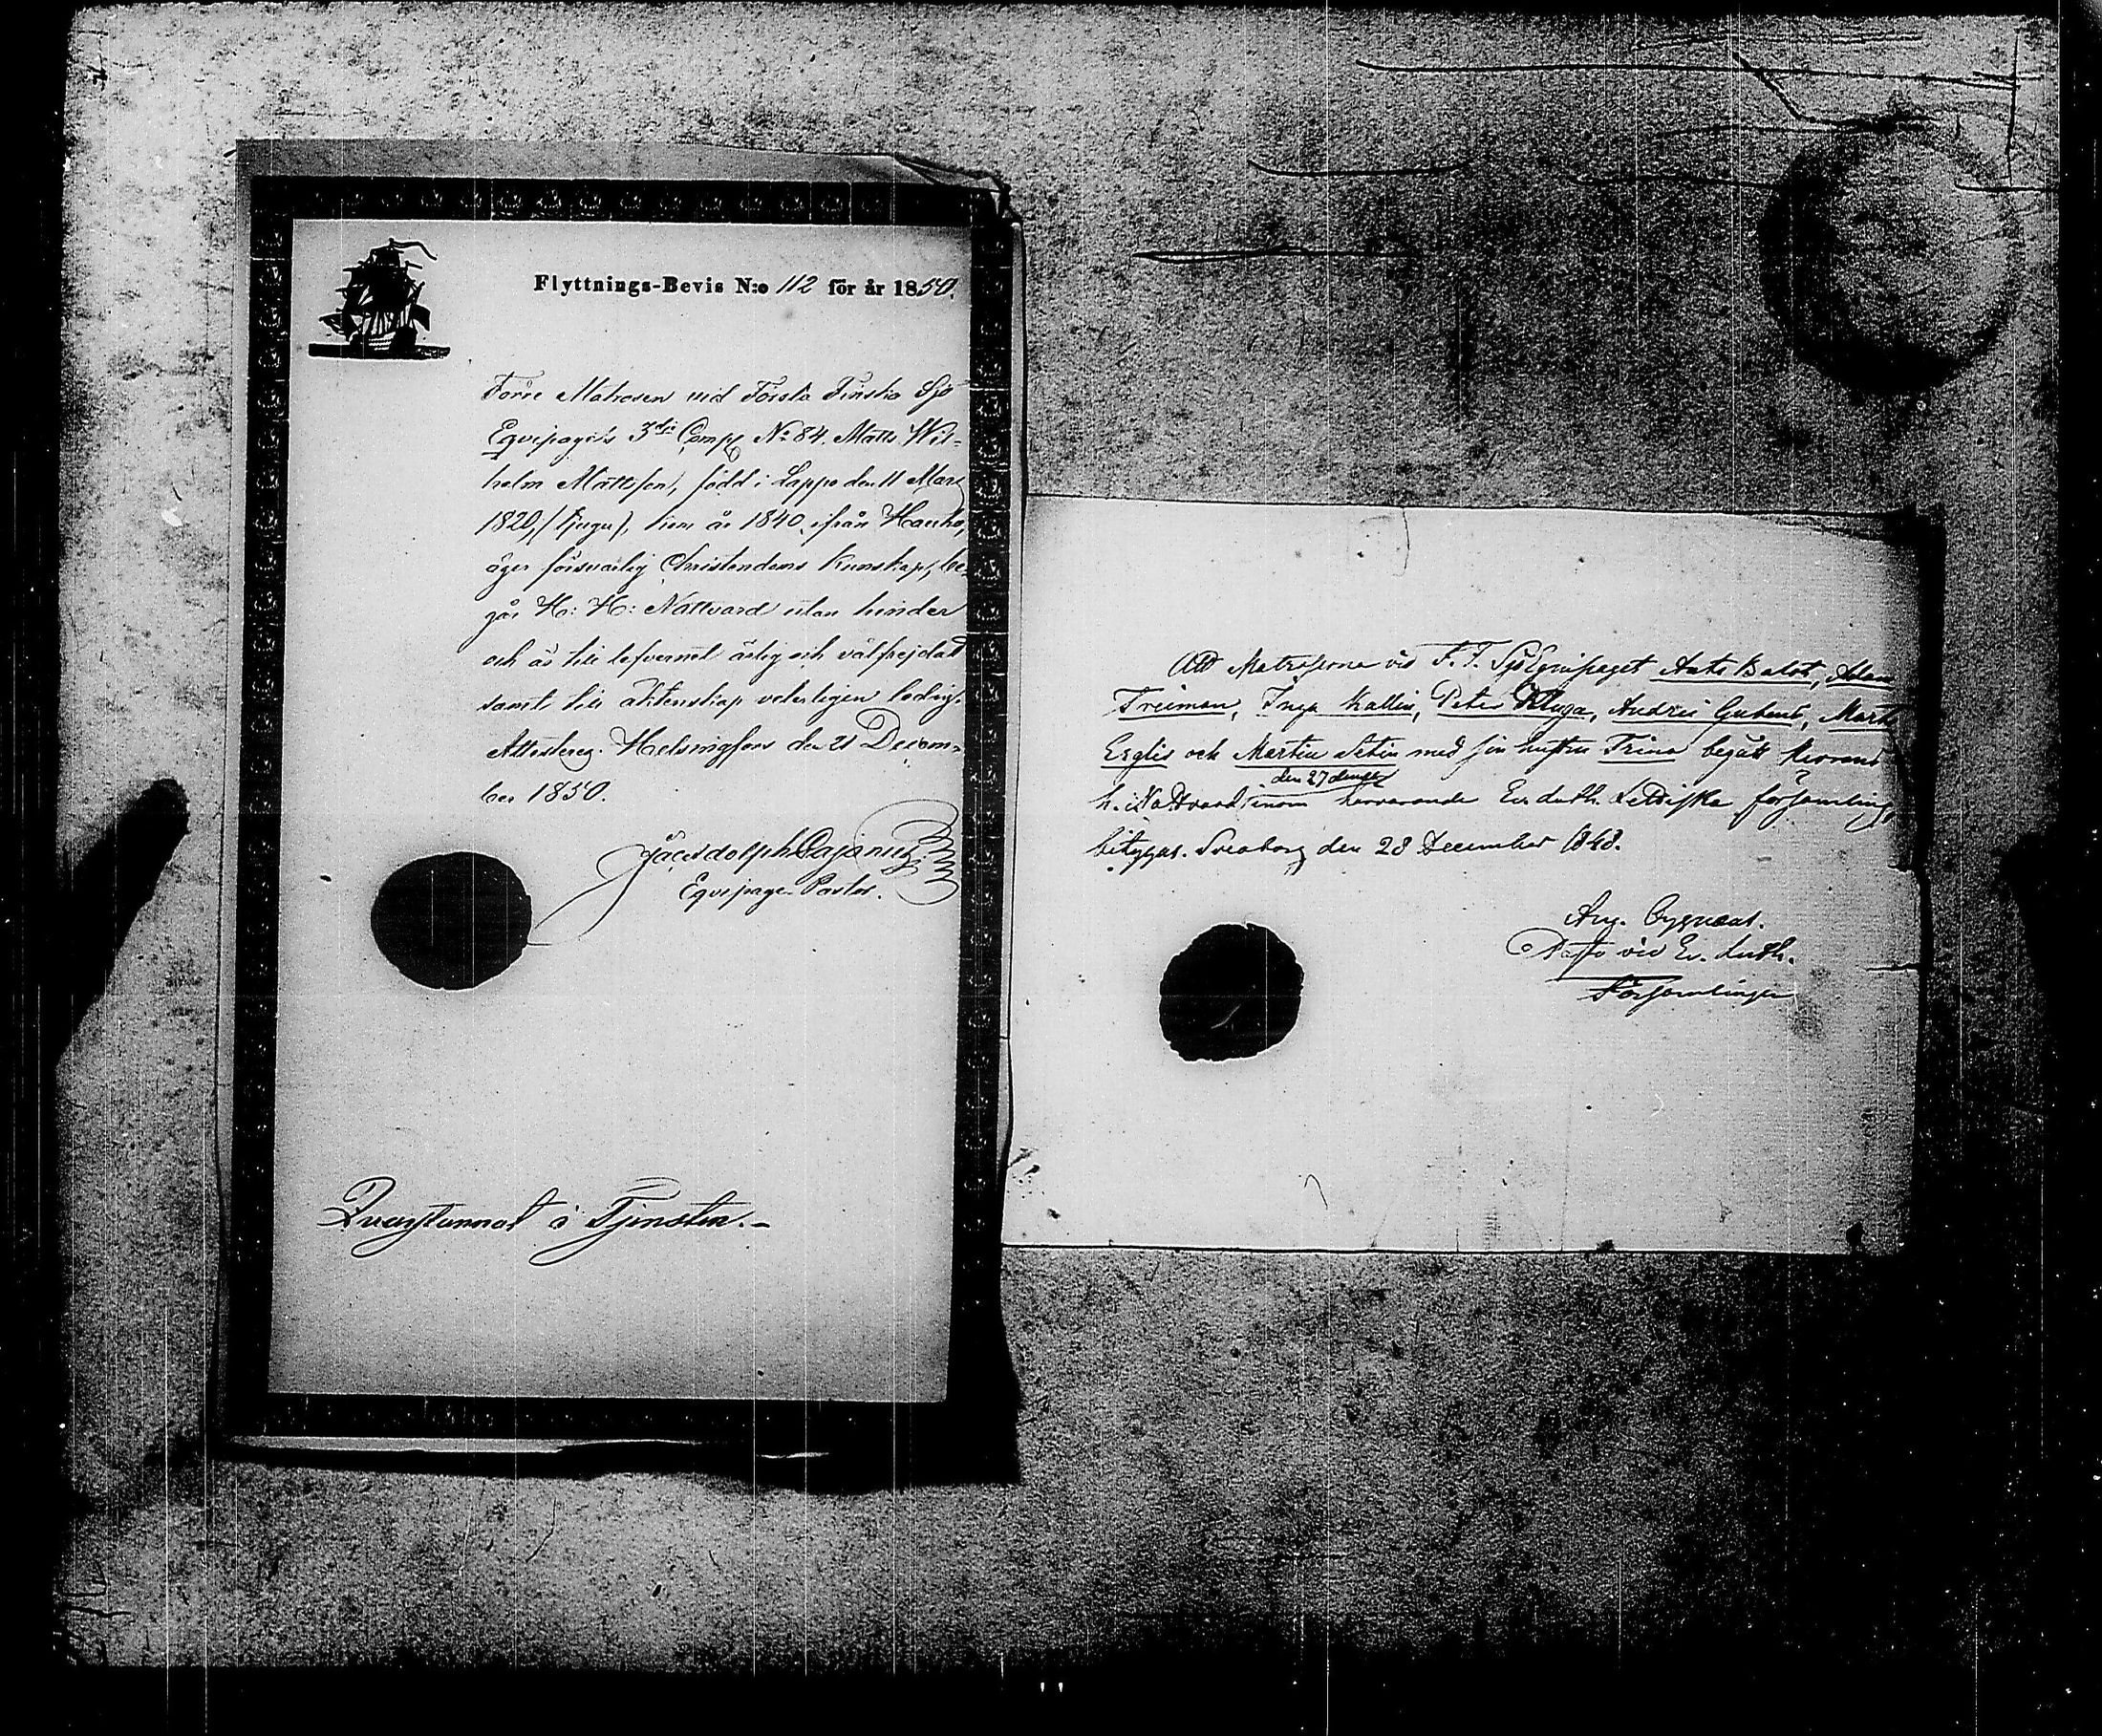 Flyttnings-Bevis N:o 112 för år 1850.
Förre Matrosen vid Första Finska Sjö
Equipagets 3dje Comp. No 84, Matts Wil-
helm Mattsson, född i Lappo den 11 Mars
1820, (tjugu), kom år 1840 ifrån Hauho,
äger försvarlig Christendoms Kunskap, be-
går H: H: Nattvard utan hinder
och är till lefvernet ärlig och välfrejdad
samt till äktenskap veterligen ledig.
Attesterar Helsingfors den 21 Decem-
ber 1850.
Jac. Adolph Cajanus
Equipage Pastor.
Qvarstannat i Tjensten.-
Att Matroserne vid F. F. SjöEquipaget Ants Balot, Adam
Freiman, Kallin, Peter Kluga, Andrei Gubene, Mart
Erglis och Martin Setin med sin hustru Trina begått
h. Nattvard inom härvarande Ev. Luth. Lettiska församling,
den 27 dennes
betygas. Sveaborg den 28 December 1848.
Aug. Cygnaeus.
Pastor vid Ev. Luth.
Församlingen